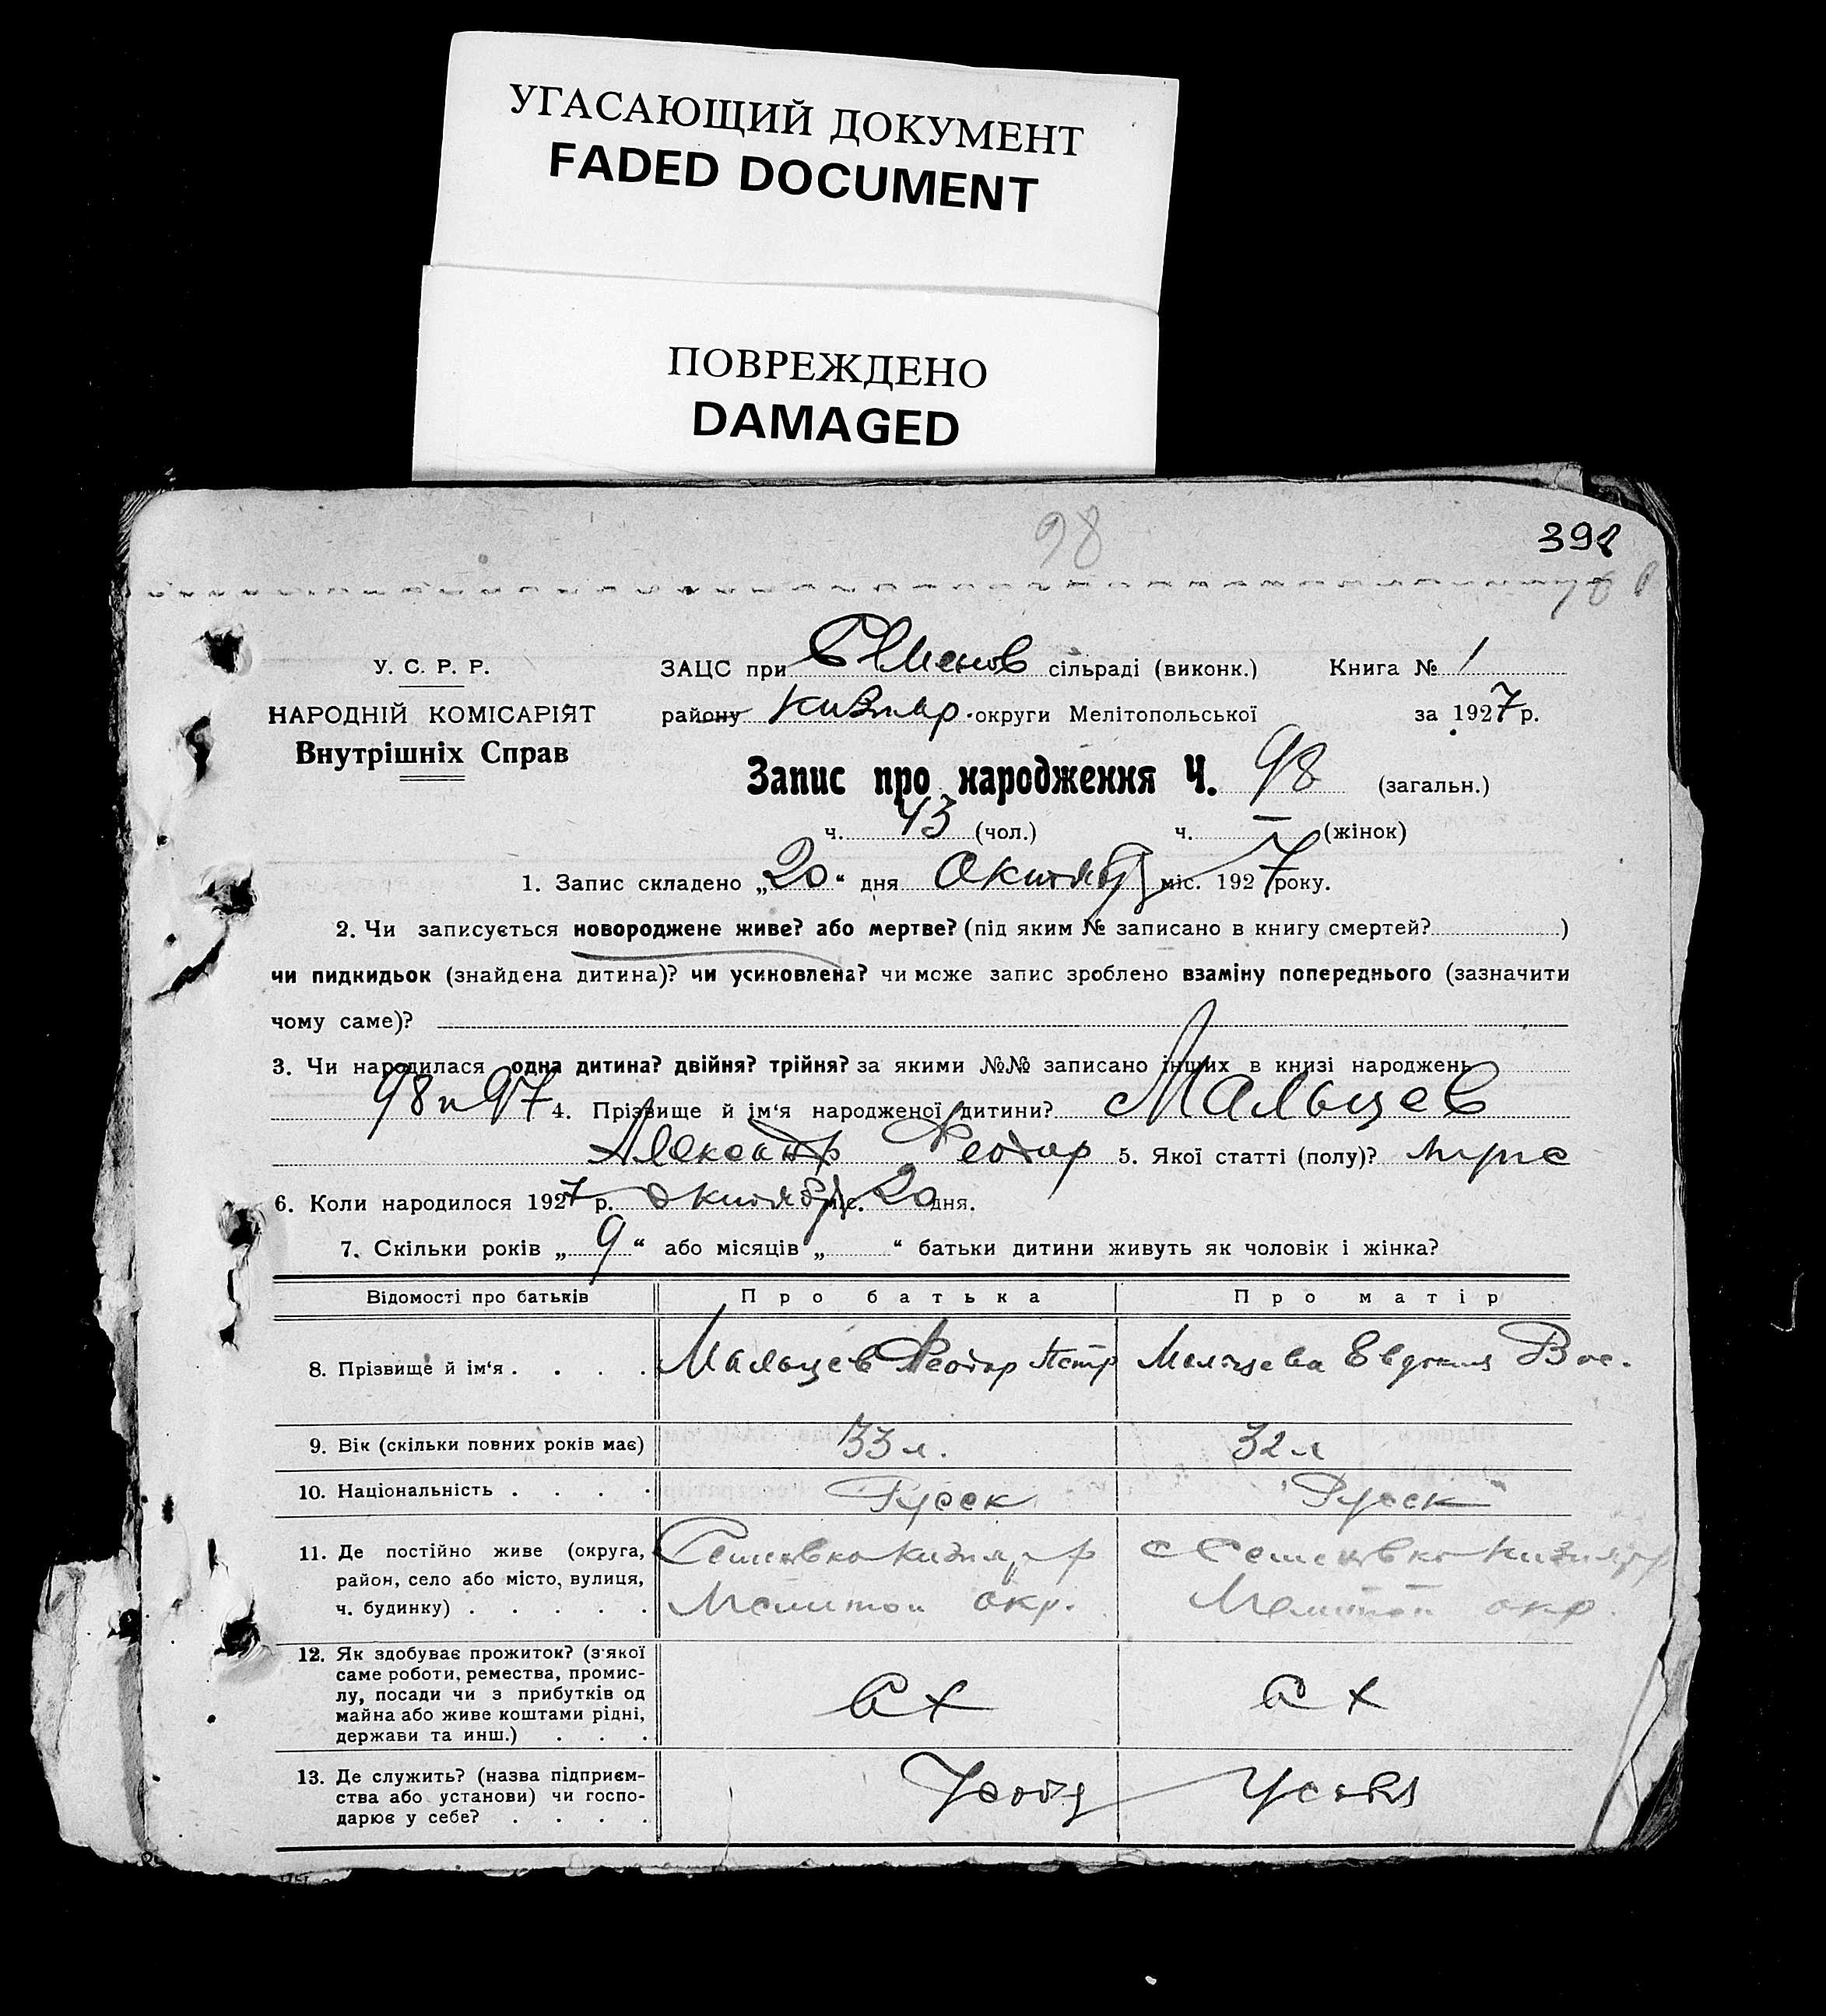 УГАСАЮЩИЙ ДОКУМЕНТ
FADED DOCUMENT
ПОВРЕЖДЕНО
DAMAGED
98
392
У. С. Р. Р.
НАРОДНІЙ КОМІСАРІЯТ
Внутрішніх Справ
ЗАЦС при Семенов сільраді (виконк.) Книга № 1
району Кизияр. округи Мелітопольської за 1927 р.
Запис про народження Ч. 98 (загальн.)
ч. 43 (чол.) ч. — (жінок)
1. Запис складено „20“ дня Октября міс. 1927 року.
2. Чи записується новороджене живе? або мертве? (під яким № записано в книгу смертей? )
чи пидкидьок (знайдена дитина)? чи усиновлена? чи може запис зроблено взаміну попереднього (зазначити
чому саме)?
3. Чи народилася одна дитина? двійня? трійня? за якими №№ записано інших в книзі народжень
98 и 97 4. Прізвище й ім‘я народженої дитини? Мальцев
Александр Феодор 5. Якої статті (полу)?
6. Коли народилося 1927 р. Октября міс. 20 дня.
7. Скільки років „9“ або місяців „ “ батьки дитини живуть як чоловік і жінка?
Відомості про батьків Про батька Про матір
8. Прізвище й ім‘я . . . . Мальцев Феодор Петр Мальцева Евдокия Вас.
9. Вік (скільки повних років має) 33 л. 32 л
10. Національність . . . . Русск Русск
11. Де постійно живе (округа, район, село або місто, вулиця, ч. будинку) . . . . . Семеновка Кизияр р Мелитоп окр. с Семеновка Кизияр р Мелитоп окр.
12. Як здобуває прожиток? (з‘якої саме роботи, ремества, промислу, посади чи з прибутків од майна або живе коштами рідні, держави та инш.) . . . С Х С Х
13. Де служить? (назва підприємства або установи) чи господарює у себе? . . . . У себя У себя